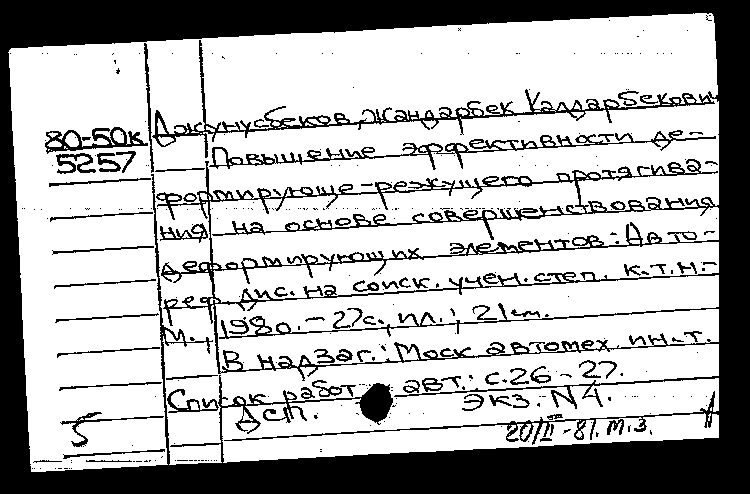 80-50к
5257
Джунусбеков, Жандарбек Калдарбекович
Повышение эффективности де-
формирующе-режущего протягива-
ния на основе совершенствования
деформирующих элементов: Авто-
реф. дис. на соиск. учен. степ. к.т.н.-
М., 1980.-27с., ил.; 21см.
В надзаг.: Моск автомех. ин.-т.
Список работ авт.: с.26-27.
Дсп. экз. N4.
5
20/II-81. м.з.